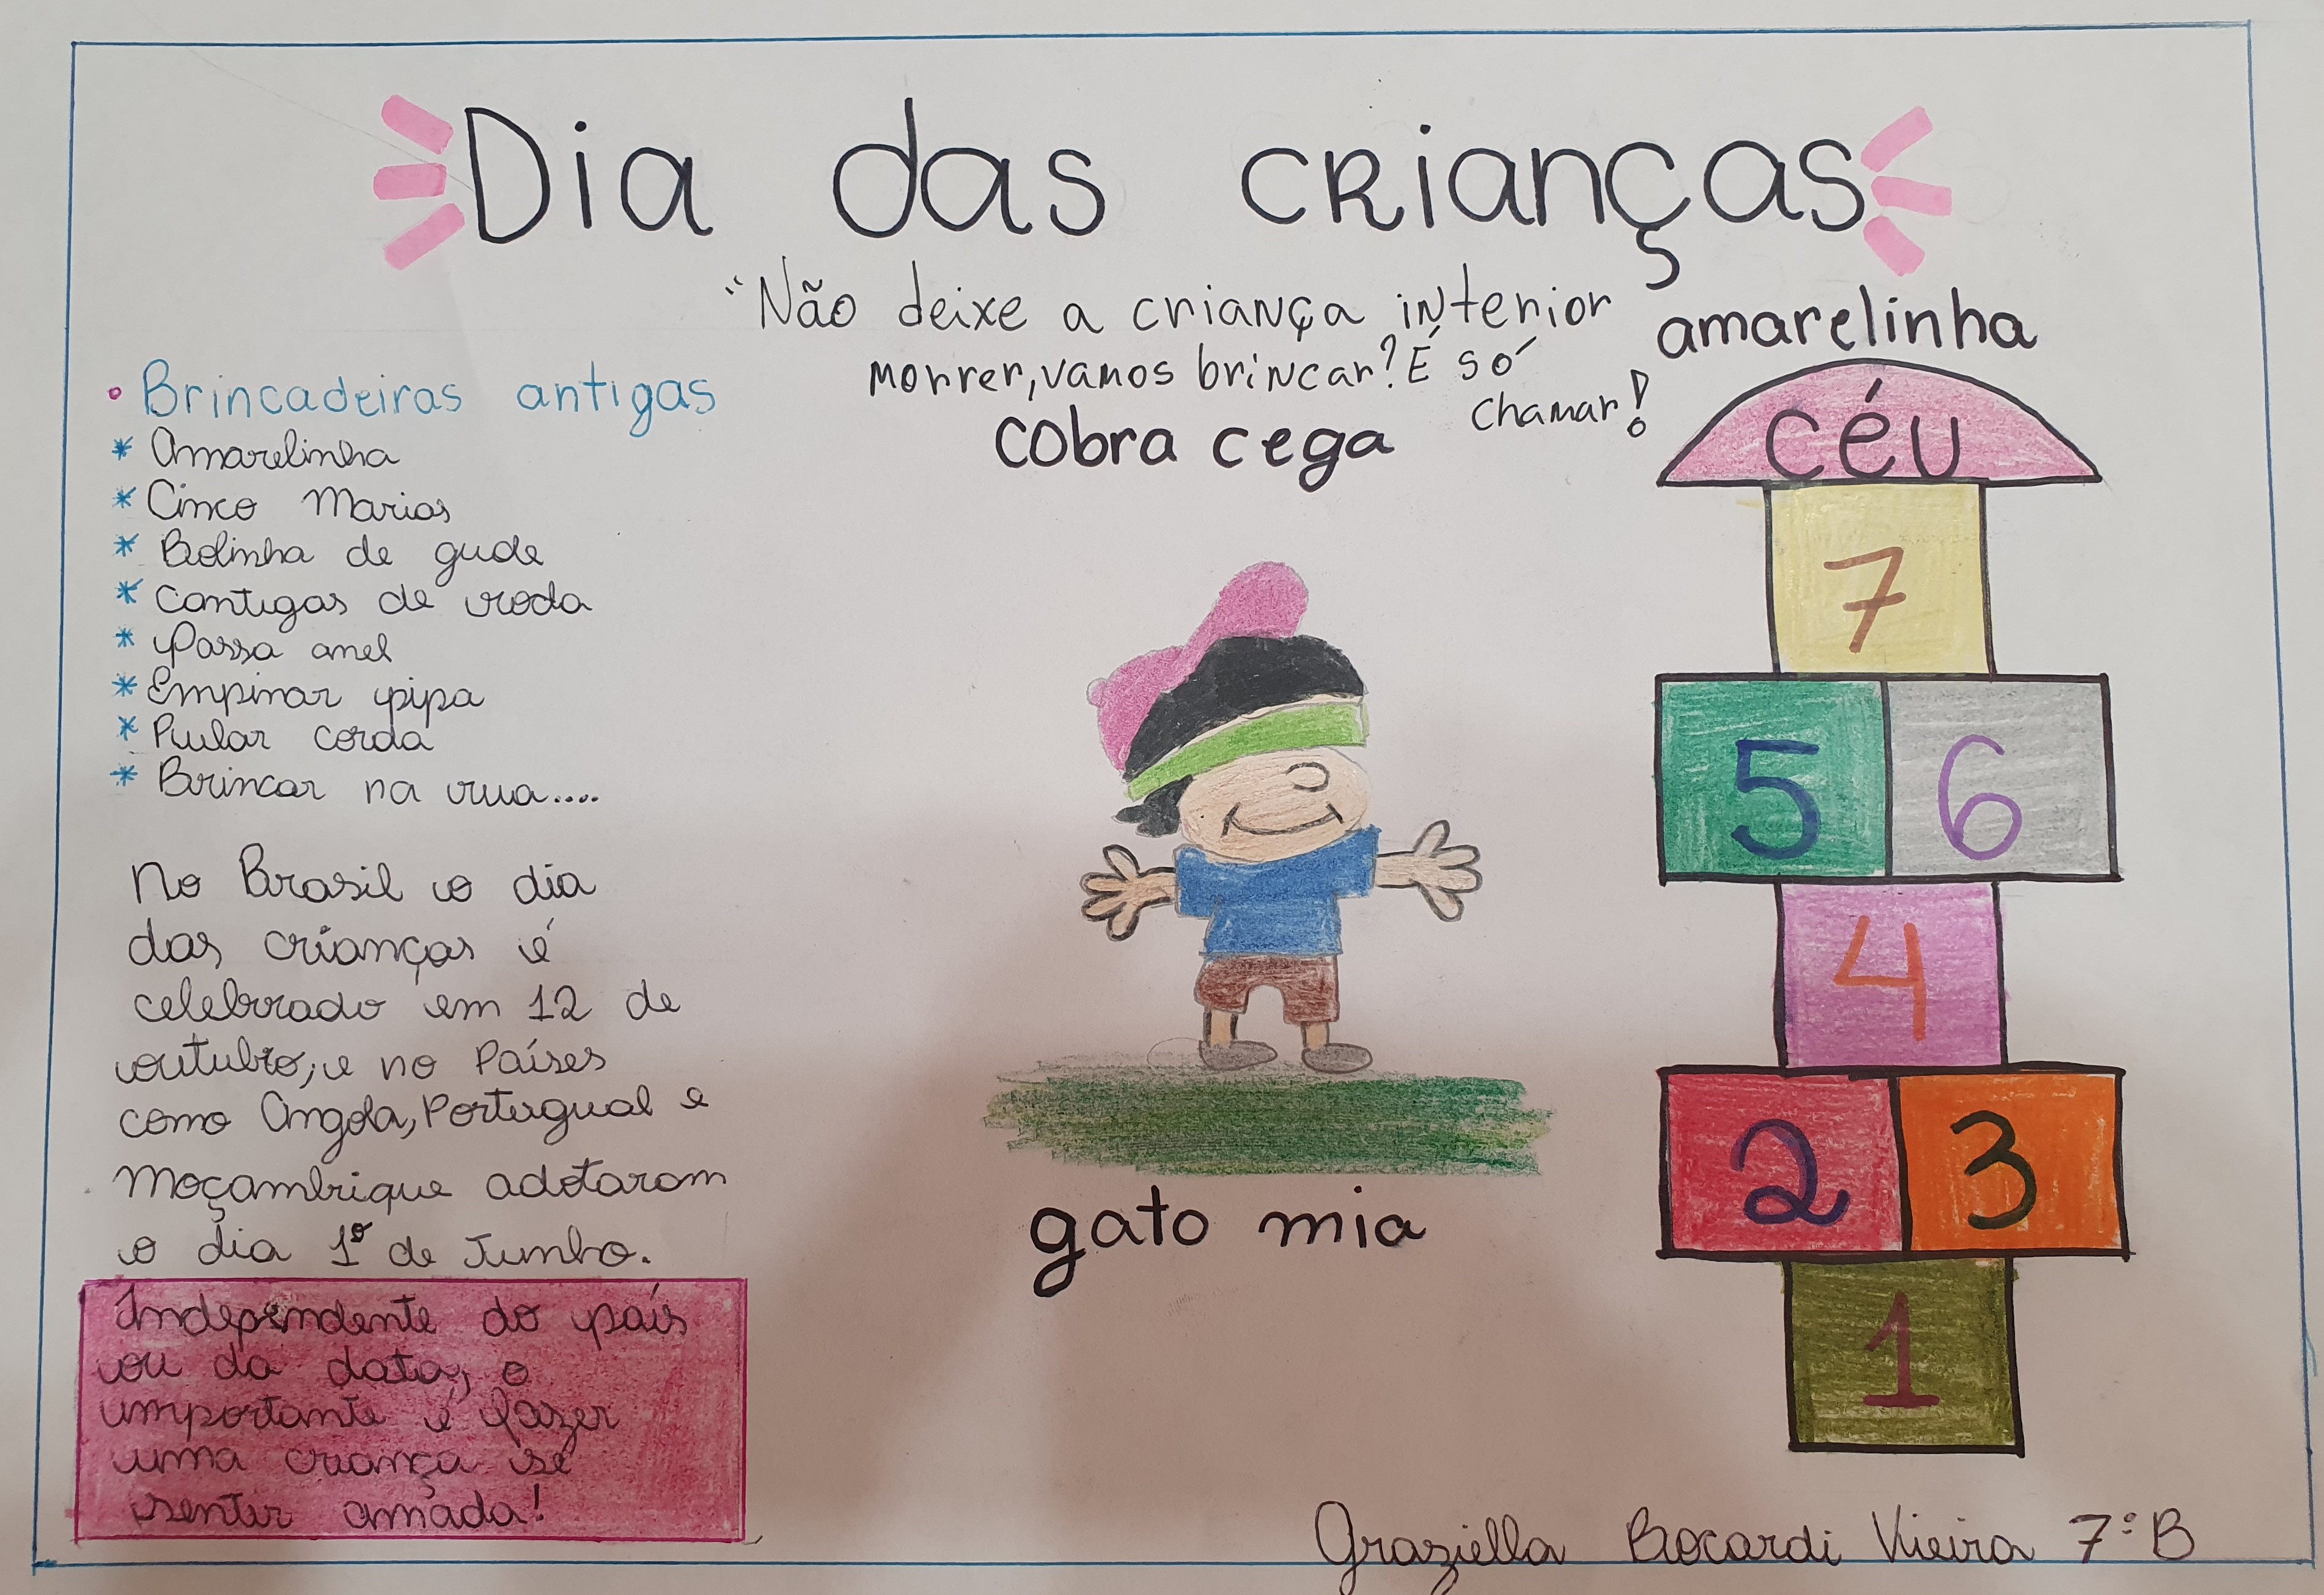 Dia das crianças
"Não deixe a criança interior
morrer, vamos brincar? É só
chamar!
• Brincadeiras antigas
* Amarelinha
* Cinco Marias
* Bolinha de gude
* Cantigas de roda
* Passa anel
* Empinar pipa
* Pular corda
* Brincar na rua....
No Brasil o dia
das crianças é
celebrado em 12 de
outubro, e no Países
como Angola, Portugual e
Moçambique adotaram
o dia 1º de Junho.
Independente do país
ou da data, o
importante é fazer
uma criança se
sentir amada!
cobra cega
gato mia
amarelinha
céu
7
5 6
4
2 3
1
Graziella Bocardi Vieira 7º B